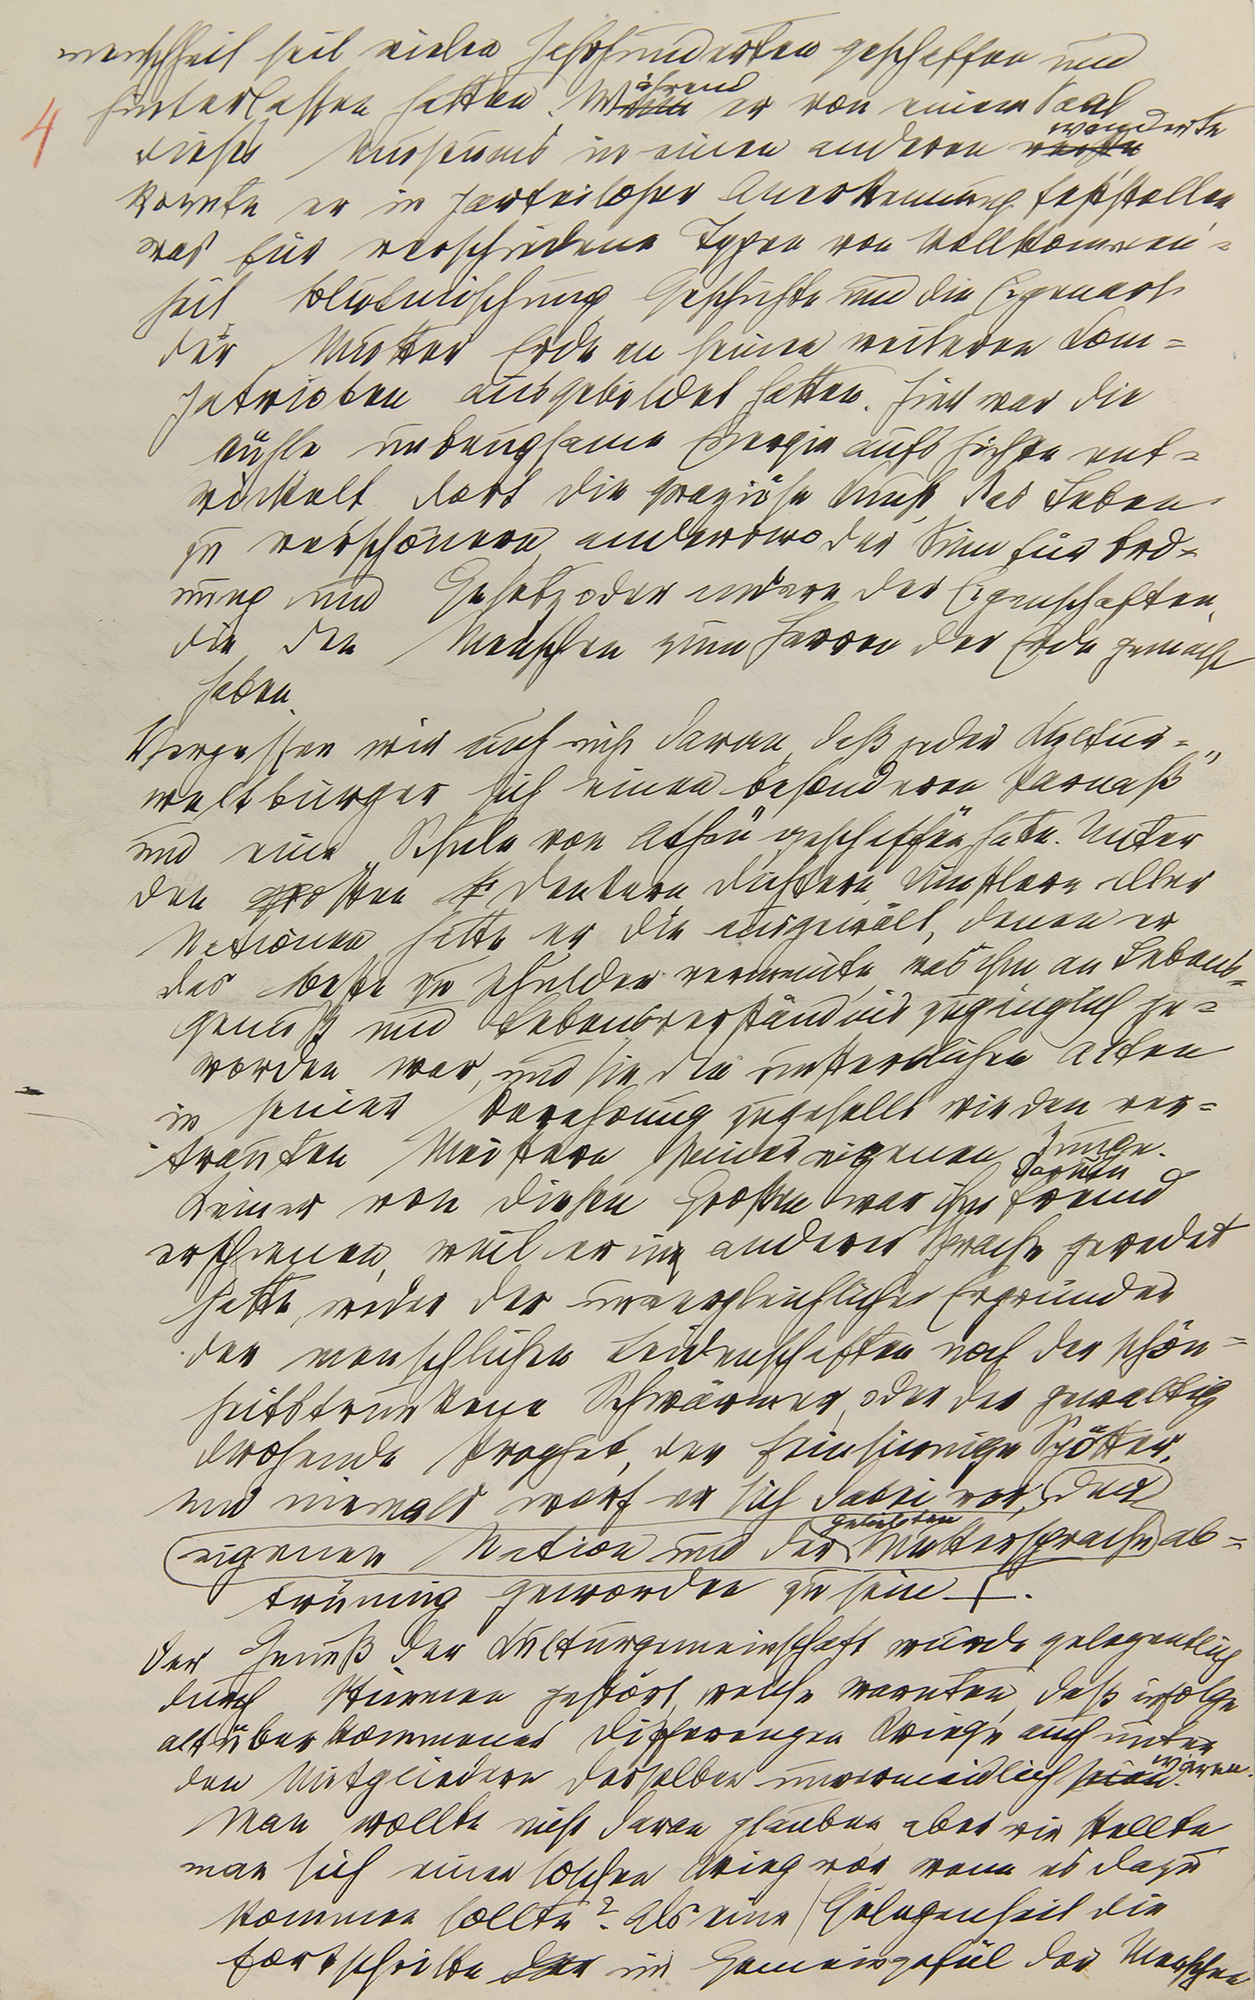 menschheit seit vielen Jahrhunderten geschaffen und
4 hinterlassen hatten. Während er von einem Saal
dieses Museums in einen anderen wanderte
konnte er in parteiloser Anerkennung feststellen
was für verschiedene Typen von Vollkommen-
heit Blutmischung Geschichte und die Eigenart
der Mutter Erde an seinen weiteren Com-
patrioten ausgebildet hatten. Hier war die
kühle unbeugsame Energie aufs höchste ent-
wickelt dort die graziöse Kunst das Leben
zu verschönern anderswo der Sinn für Ord-
nung und Gesetz oder andere der Eigenschaften,
die den Menschen zum Herren der Erde gemacht
haben.
Vergessen wir auch nicht daran, daß jeder Kultur-
weltbürger sich einen besonderen „Parnaß"
und eine „Schule von Athen" geschaffen hatte. Unter
den großen Denkern Dichtern Künstlern aller
Nationen hatte er die ausgewält, denen er
das beste zu schulden vermeinte was ihm an Lebens-
genuß und Lebensverständnis zugänglich ge-
worden war, und sie den unsterblichen Alten
in seiner Verehrung zugesellt wie den ver-
trauten Meistern seiner eigenen Zunge.
Keiner von diesen Großen war ihm darum fremd
erschienen, weil er in anderer Sprache geredet
hatte, weder der unvergleichliche Ergründer
der menschlichen Leidenschaften noch der schön-
heitstrunkene Schwärmer, oder der gewaltig
drohende Prophet, der feinsinnige Spötter,
und niemals warf er sich dabei vor, der
eigenen Nation und der geliebten Muttersprache ab-
trünnig geworden zu sein.
Der Genuß der Kulturgemeinschaft wurde gelegentlich
durch Stimmen gestört, welche warnten, daß infolge
altüberkommener Differenzen Kriege auch unter
den Mitgliedern derselben unvermeidlich wären.
Man wollte nicht daran glauben aber wie stellte
man sich einen solchen Krieg vor wenn es dazu
kommen sollte? Als eine Gelegenheit die
Fortschritte im Gemeingefül der Menschen